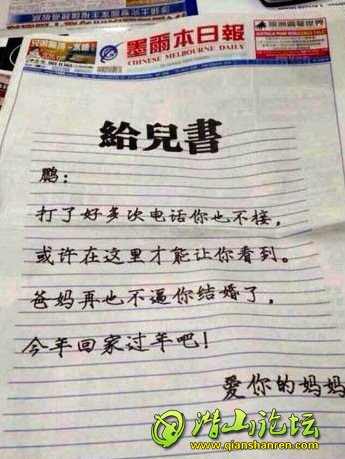 墨爾本日報
CHINESE MELBOURNE DAILY
給兒書
鹏：
打了好多次电话你也不接，
或许在这里才能让你看到。
爸妈再也不逼你结婚了，
今年回家过年吧！
爱你的妈妈
潜山论坛
www.qianshanren.com